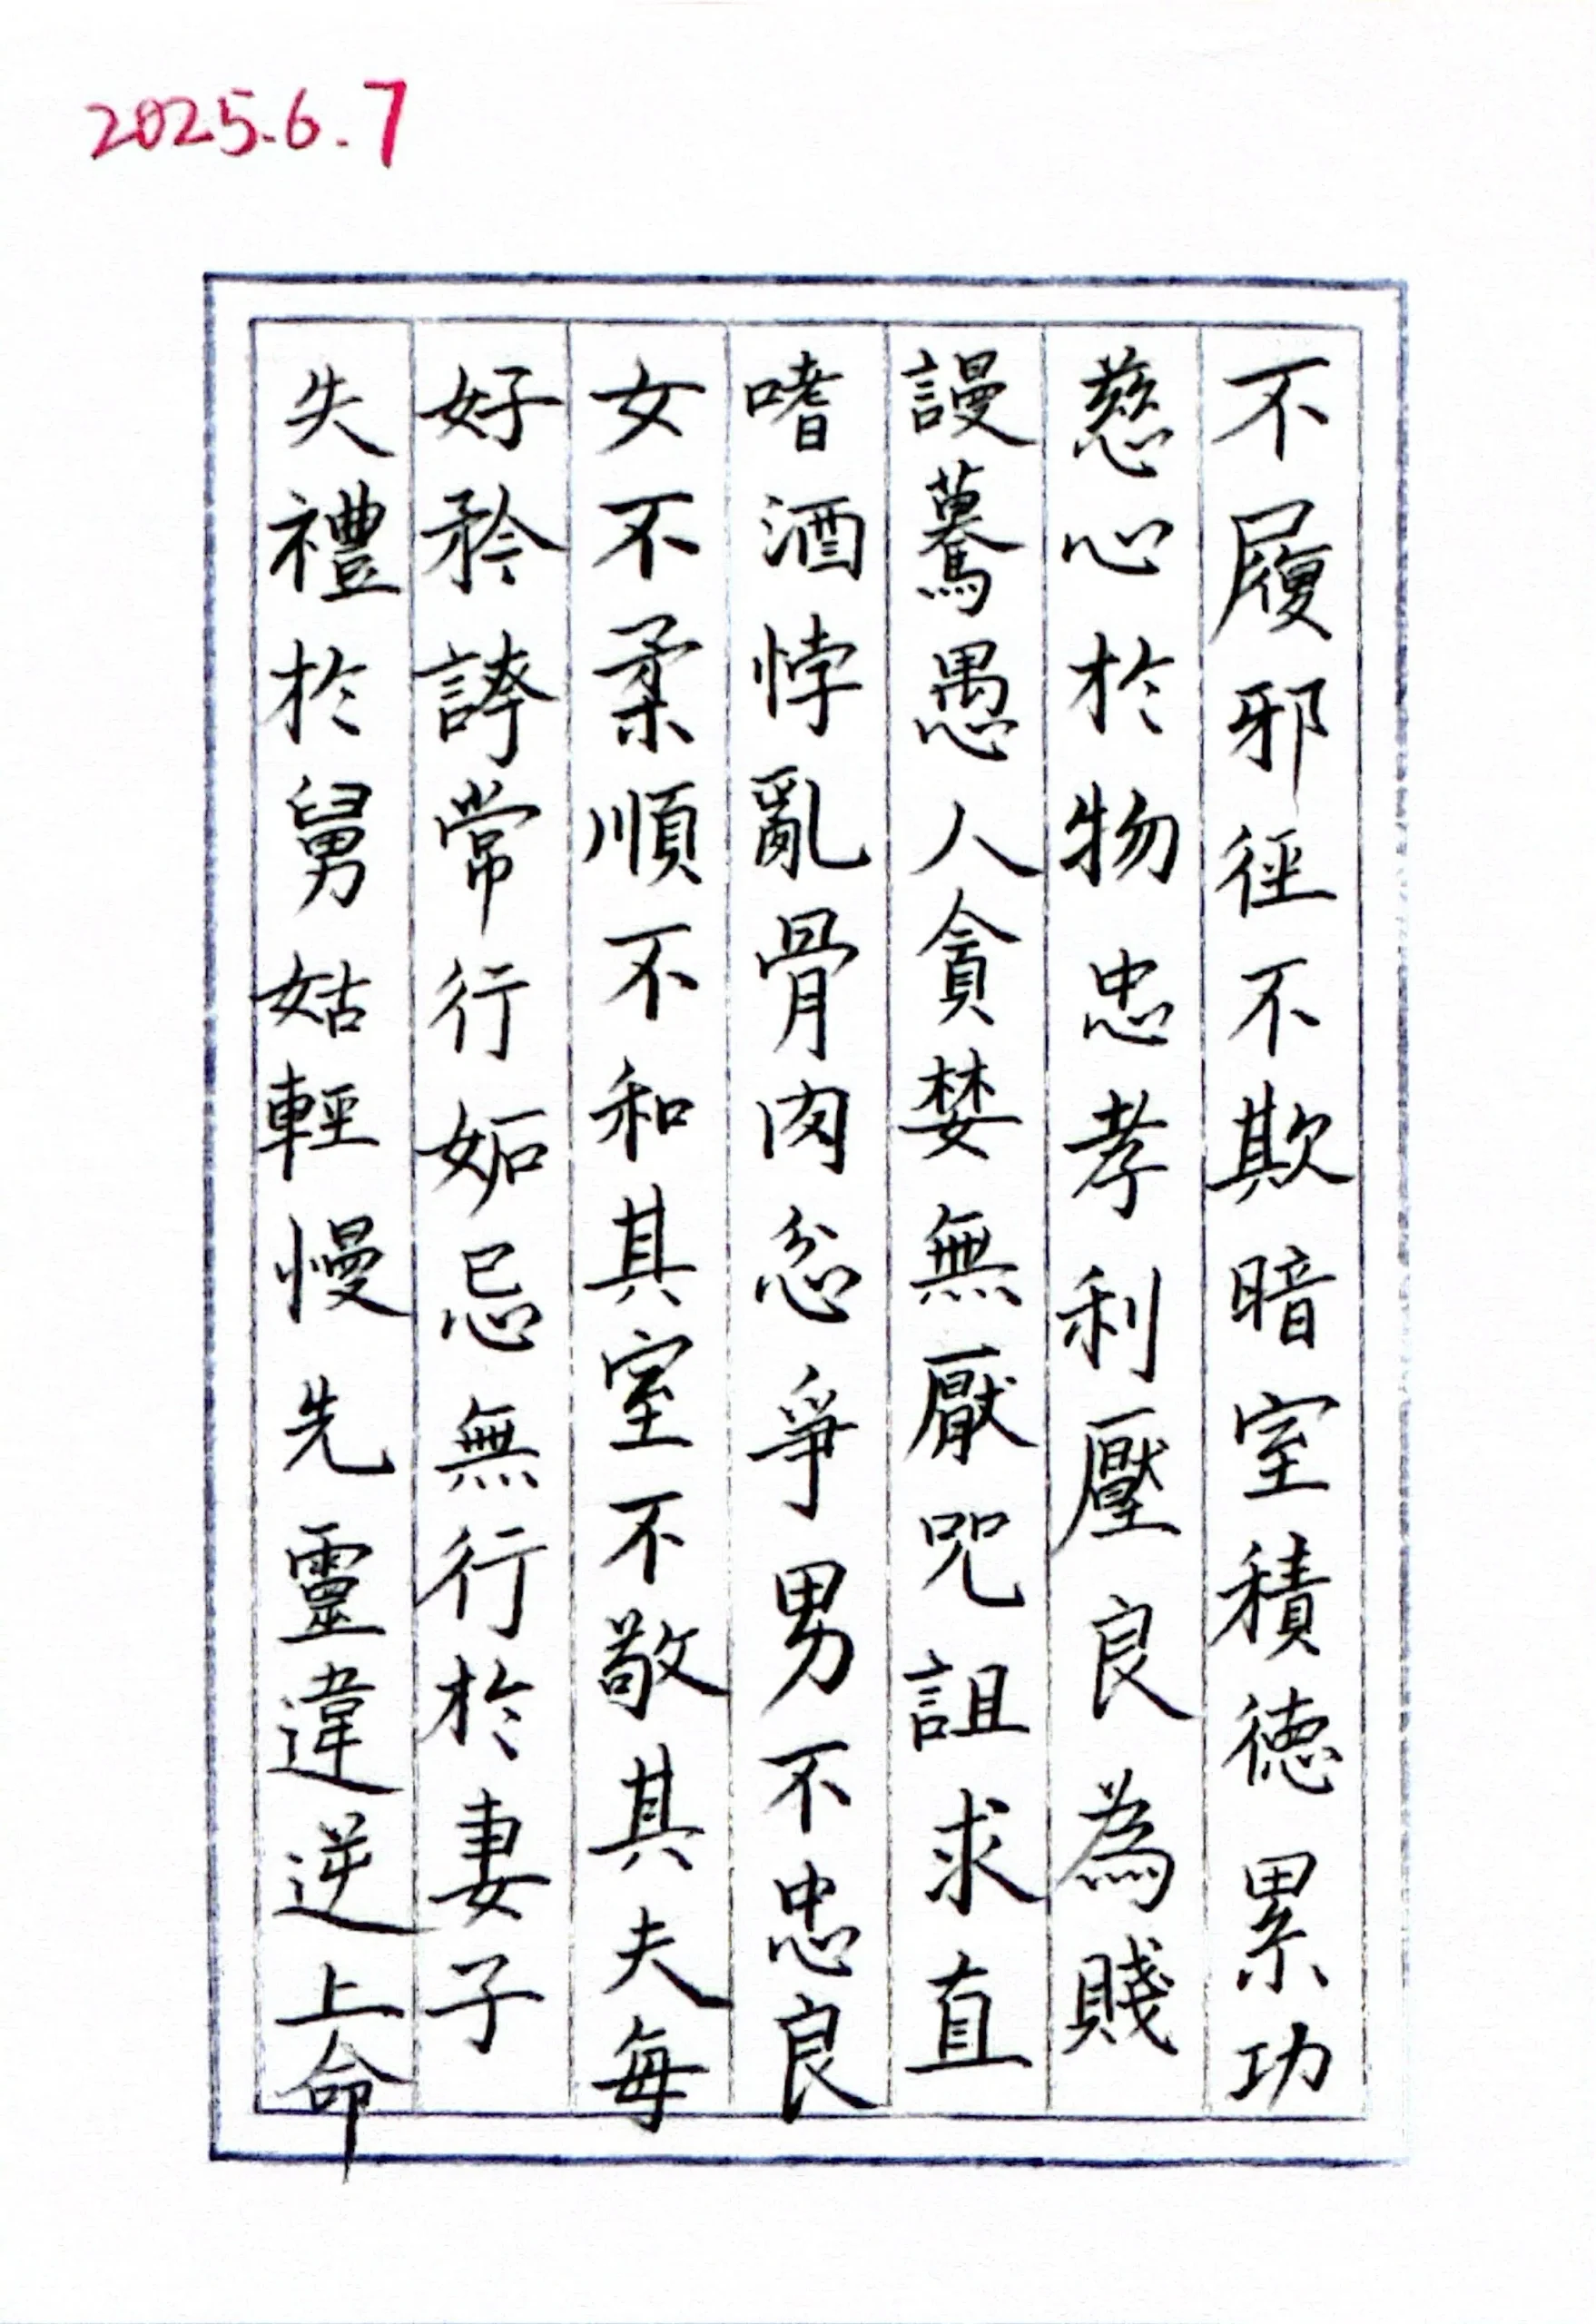 2025.6.7
不履邪徑不欺暗室積德累功
慈心於物忠孝利壓良為賤
謾驀愚人貪婪無厭咒詛求直
嗜酒悖亂骨肉忿爭男不忠良
女不柔順不和其室不敬其夫每
好矜誇常行妬忌無行於妻子
失禮於舅姑輕慢先靈違逆上命